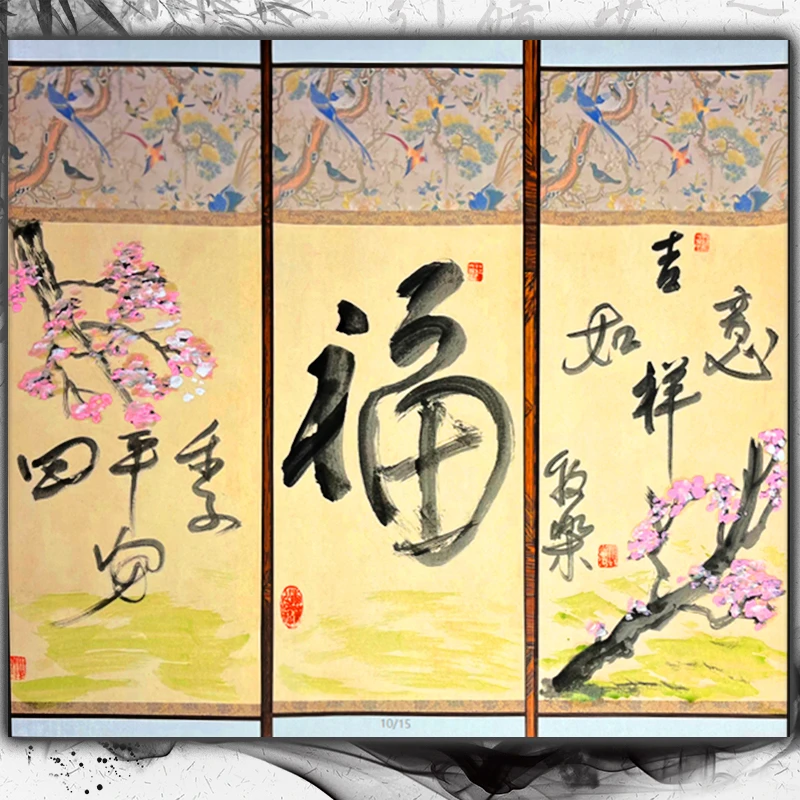 四季平安
福
吉祥如意
10/15